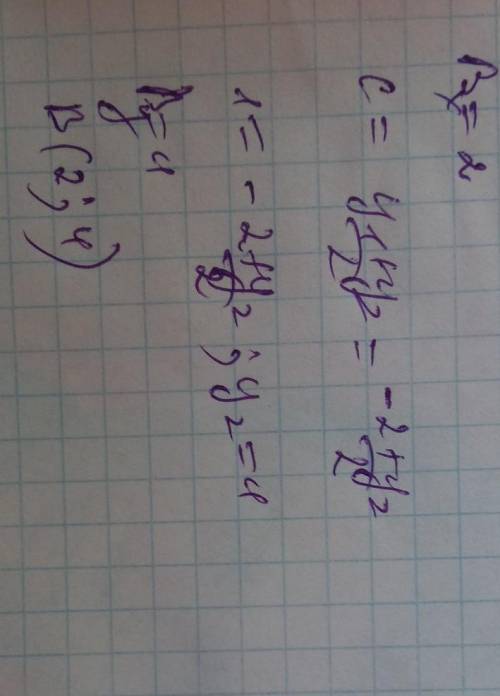 Bx = 2
C = (y1+y2)/2 = (-2+y2)/2
1 = (-2+y2)/2 ; y2 = 4
By = 4
B(2;4)